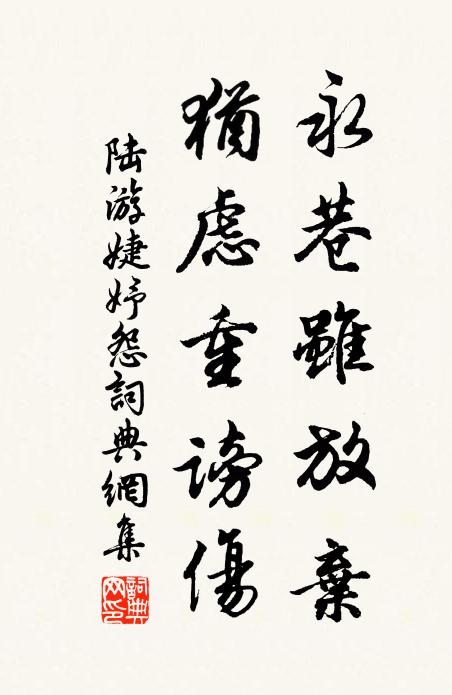 永巷雖放棄
猶慮重謗傷
陸游婕妤怨詞典網集
詞典网印